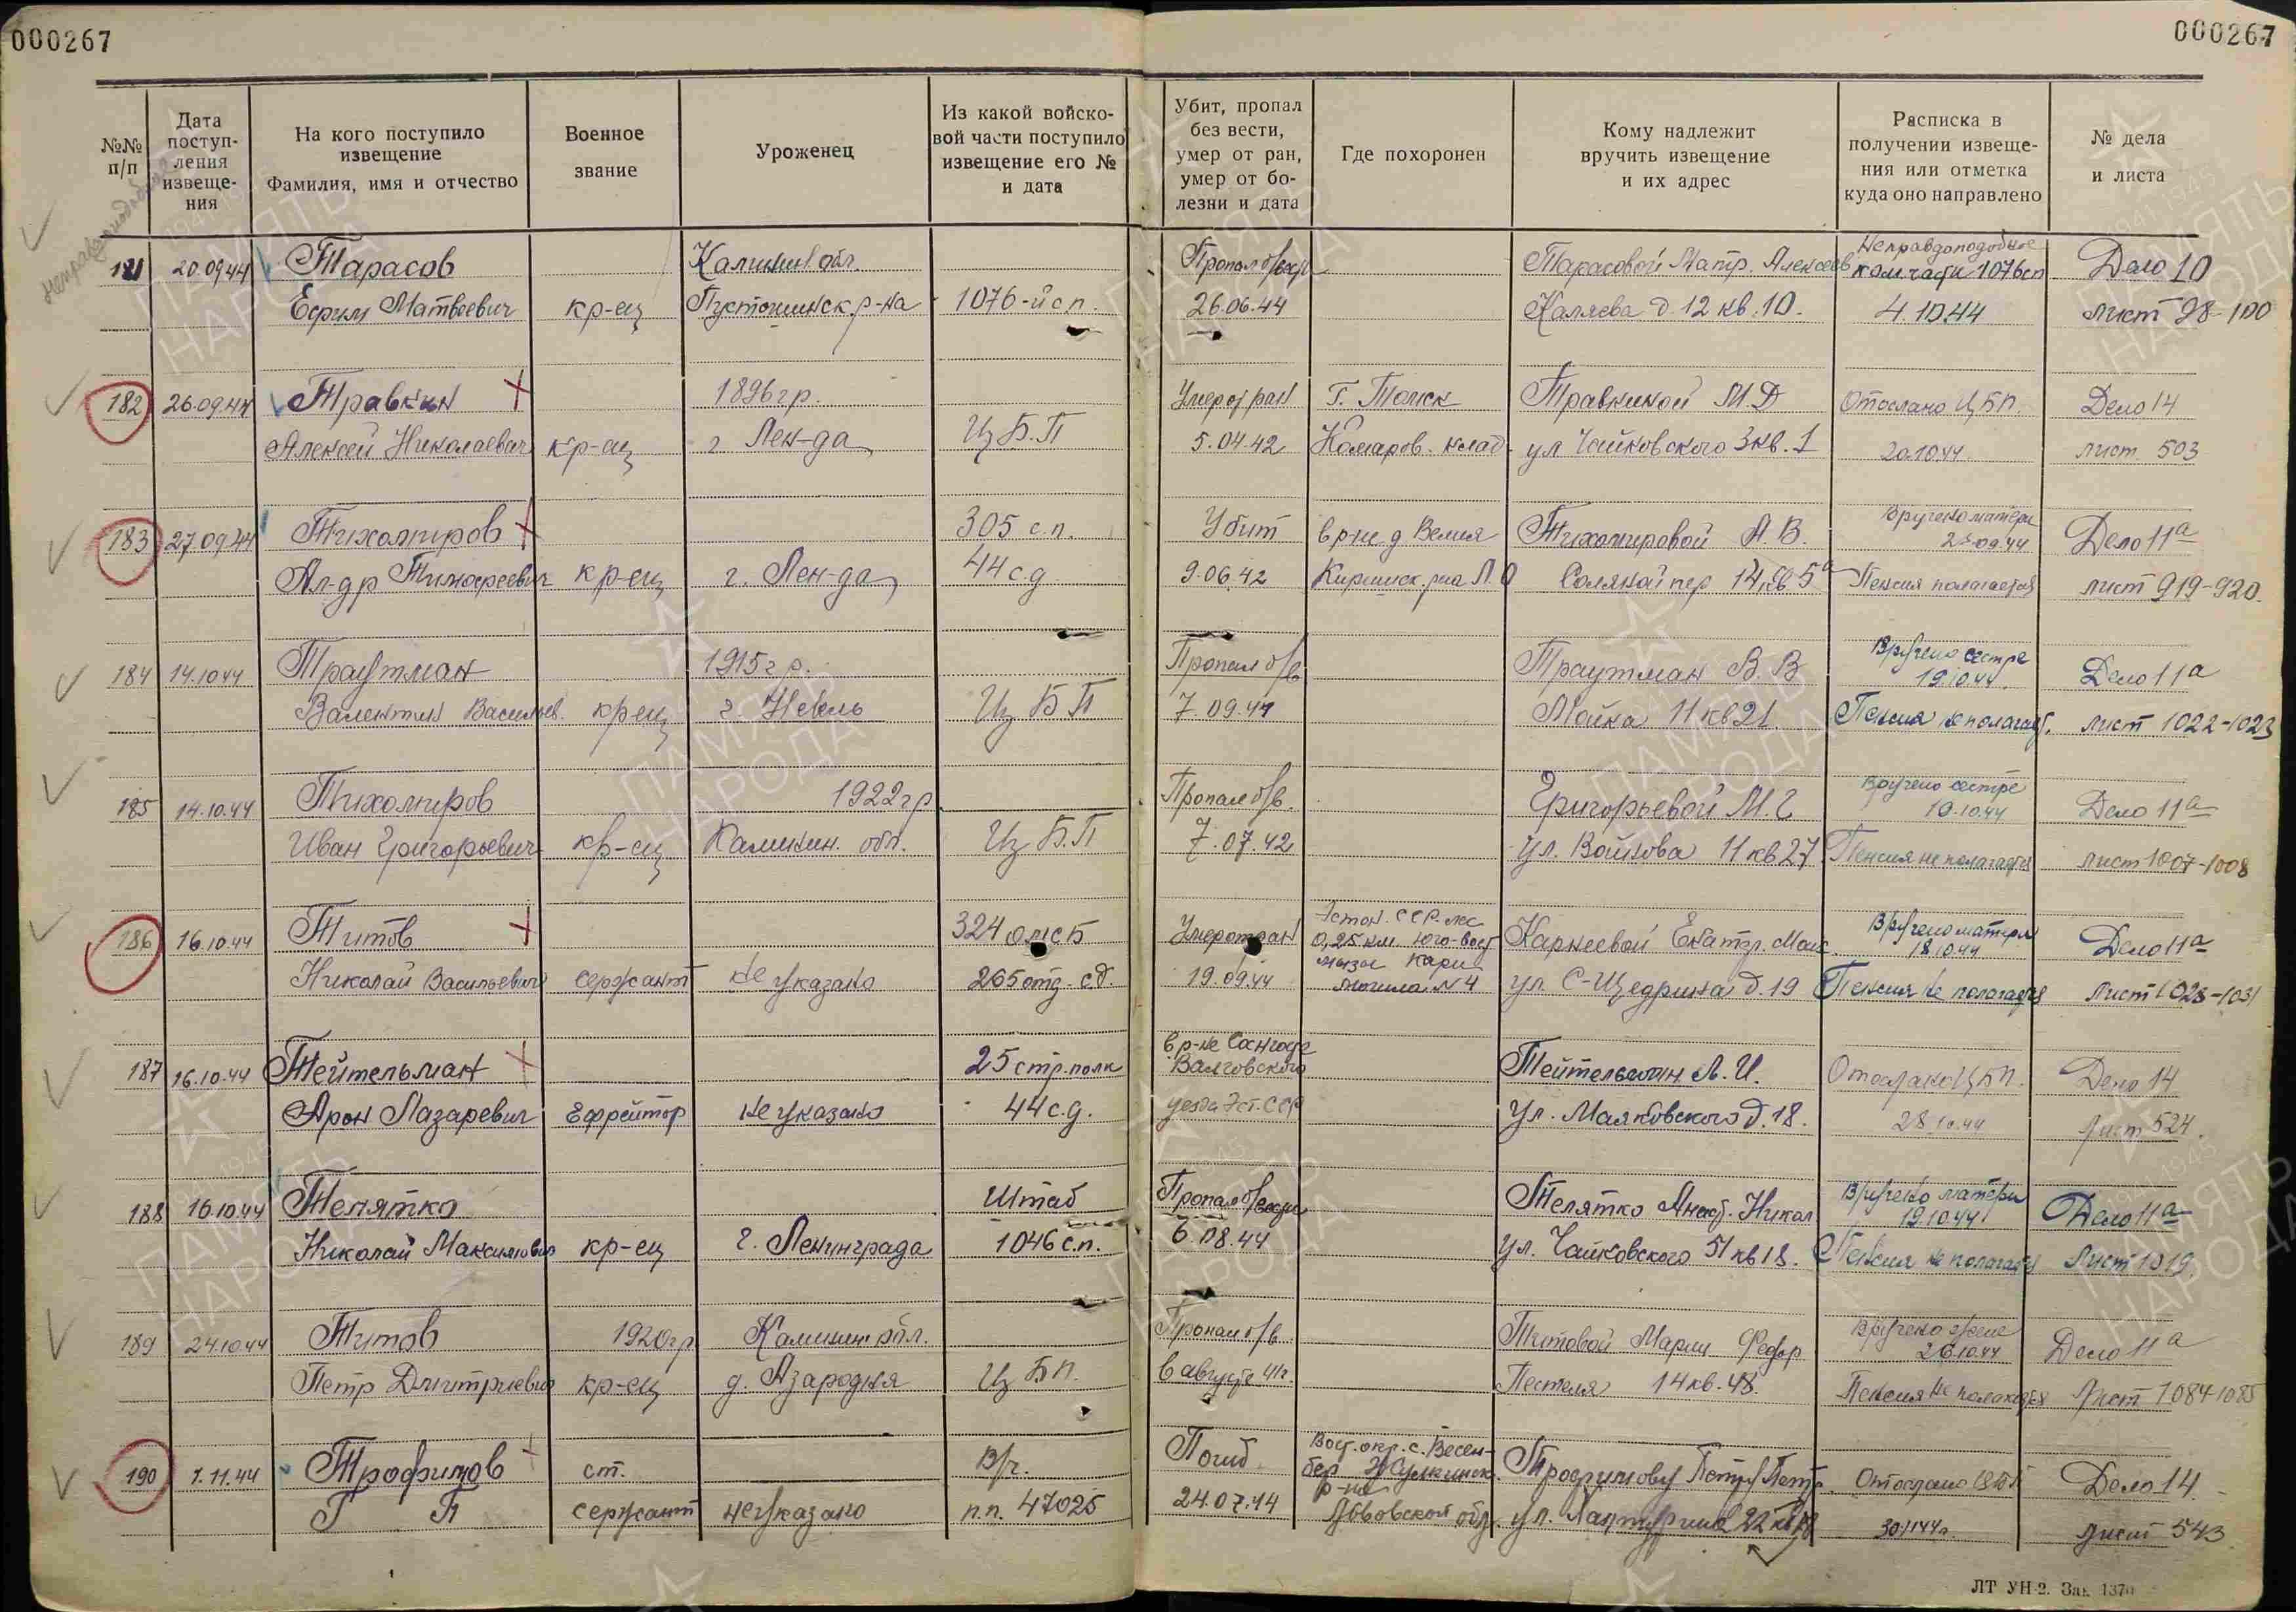 000267
000267
№№ п/п
Дата поступ-ления извеще-ния
На кого поступило извещение Фамилия, имя и отчество
Военное звание
Уроженец
Из какой войско-вой части поступило извещение его № и дата
Убит, пропал без вести, умер от ран, умер от бо-лезни и дата
Где похоронен
Кому надлежит вручить извещение и их адрес
Расписка в получении извеще-ния или отметка куда оно направлено
№ дела и листа
181 20.09.44 Тарасов Калинин обл. Пропал б/вести Тарасовой Матр. Алексеев Неправдоподобное ком. части 1076 сп Дело 10
Ефим Матвеевич кр-ец Пустошинск. р-на 1076-й с п. 26.06.44 Каляева д. 12 кв. 10. 4.10.44 лист 98-100
182 26.09.44 Травкин 1896 гр. Умер от ран Г. Томск Травкиной М.Д Отослано ЦБП. Дело 14
Алексей Николаевич кр-ец г. Лен-да ЦБ.П 5.04.42 Комаров. клад. ул Чайковского 3 кв. 1 20.10.44 лист 503
183 27.09.44 Тихомиров 305 с.п. Убит в р-не д Велия Тихомировой А.В. Вручено матери 09.44 Дело 11а
Ал-др Тимофеевич кр-ец г. Лен-да 44 с д 9.06.42 Киришск. р-на Л.О Соляной пер 14 кв 5а Пенсия полагается лист 919-920
184 14.10.44 Траутман 1915 г р. Пропал б/в Траутман В.В Вручено сестре 19.10.44. Дело 11а
Валентин Васильев. кр-ец г. Невель ЦБП 7.09.41 Мойка 11 кв 21. Пенсия не полагает. лист 1022-1023
185 14.10.44 Тихомиров 1922 гр Пропал б/в. Григорьевой М.Г Вручено сестре 19.10.44 Дело 11а
Иван Григорьевич кр-ец Калинин. обл. ЦБ.П 7.07.42 ул. Войкова 11 кв 27 Пенсия не полагается лист 1007-1008
186 16.10.44 Титов 324 омсб Умер от ран Эстон. ССР. лес 0,25 км. юго-вост Карнеевой Екатер. Макс. Вручено матери 18.10.44 Дело 11а
Николай Васильевич сержант не указано 265 отд. с.д. 19.09.44 мызы Кари могила N 4 ул. С-Щедрина д. 19 Пенсия не полагается Лист 1028-1031
187 16.10.44 Тейтельман 25 стр. полк в р-не Валговского Тейтельман. Л.И. Отослано ЦБП. Дело 14
Арон Лазаревич Ефрейтор не указано 44 с.д. уезда Эст. ССР ул. Маяковского д. 18. 28.10.44 Лист 524.
188 16.10.44 Телятко Штаб Пропал б/вести Телятко Анаст. Никол Вручено матери 19.10.44 Дело 11а
Николай Максимович кр-ец г. Ленинграда 1046 с.п. 6.08.44 ул. Чайковского 51 кв 18. Пенсия не полагается Лист 1019.
189 24.10.44 Титов 1920 гр Калинин обл. Пропал б/в Титовой Марии Федор Вручено жене 26.10.44 Дело 11а
Петр Дмитриевич кр-ец д. Азародня ЦБП. в августе 41 г. Пестеля 14 кв. 48. Пенсия не полагается Лист 1084-1085
190 1.11.44 Трофимов ст. В/ч. Погиб Вост. окр. с. Трофимову Петру Петр. Отослано ЦБП Дело 14.
Г П сержант не указано п.п. 47025 24.07.44 р-на Львовской обл. ул. Халтурина 22 кв 30/11 44 г. лист 543
ЛТ УН-2. Зак. 1370
ПАМЯТЬ НАРОДА
1941-1945